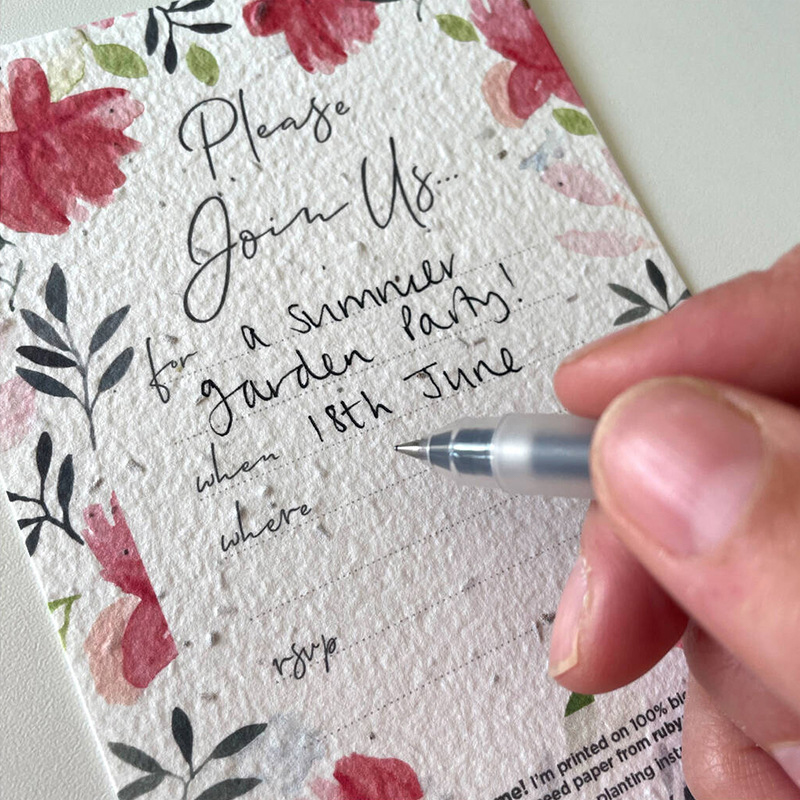 Please
Join Us...
for a summer
garden Party!
when 18th June
where
rsvp
me! I'm printed on 100%
seed paper from ruby
planting